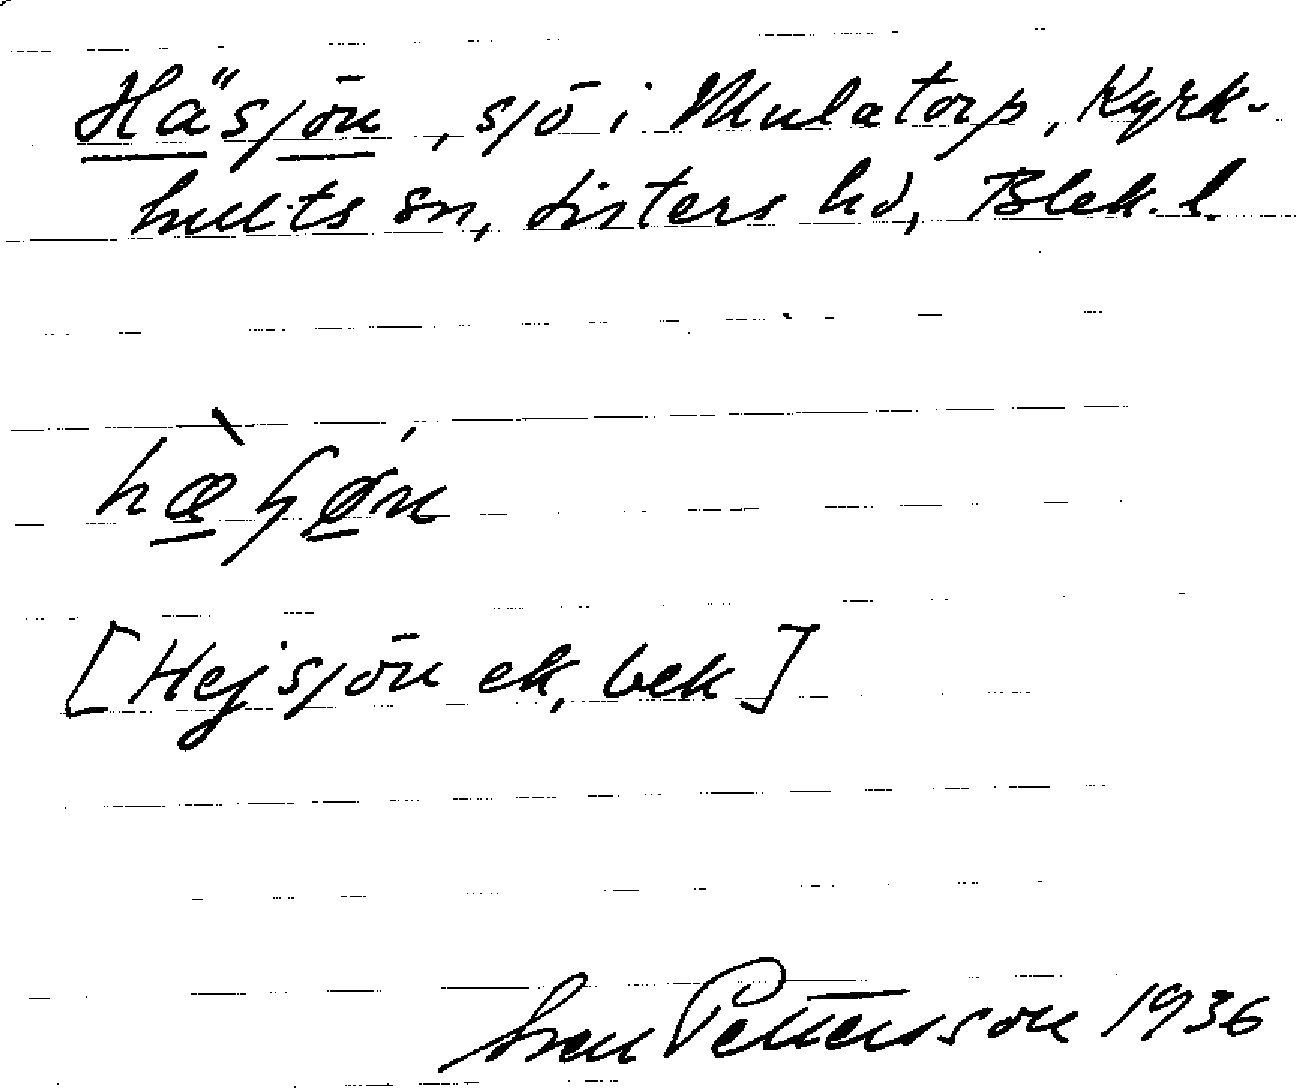 Häsjön, sjö i Mulatorp, Kyrk-
hults sn, Listers hd, Blek. l.
hæ̀ɧøń
[Hejsjön ek, bek]
Sven Pettersson 1936